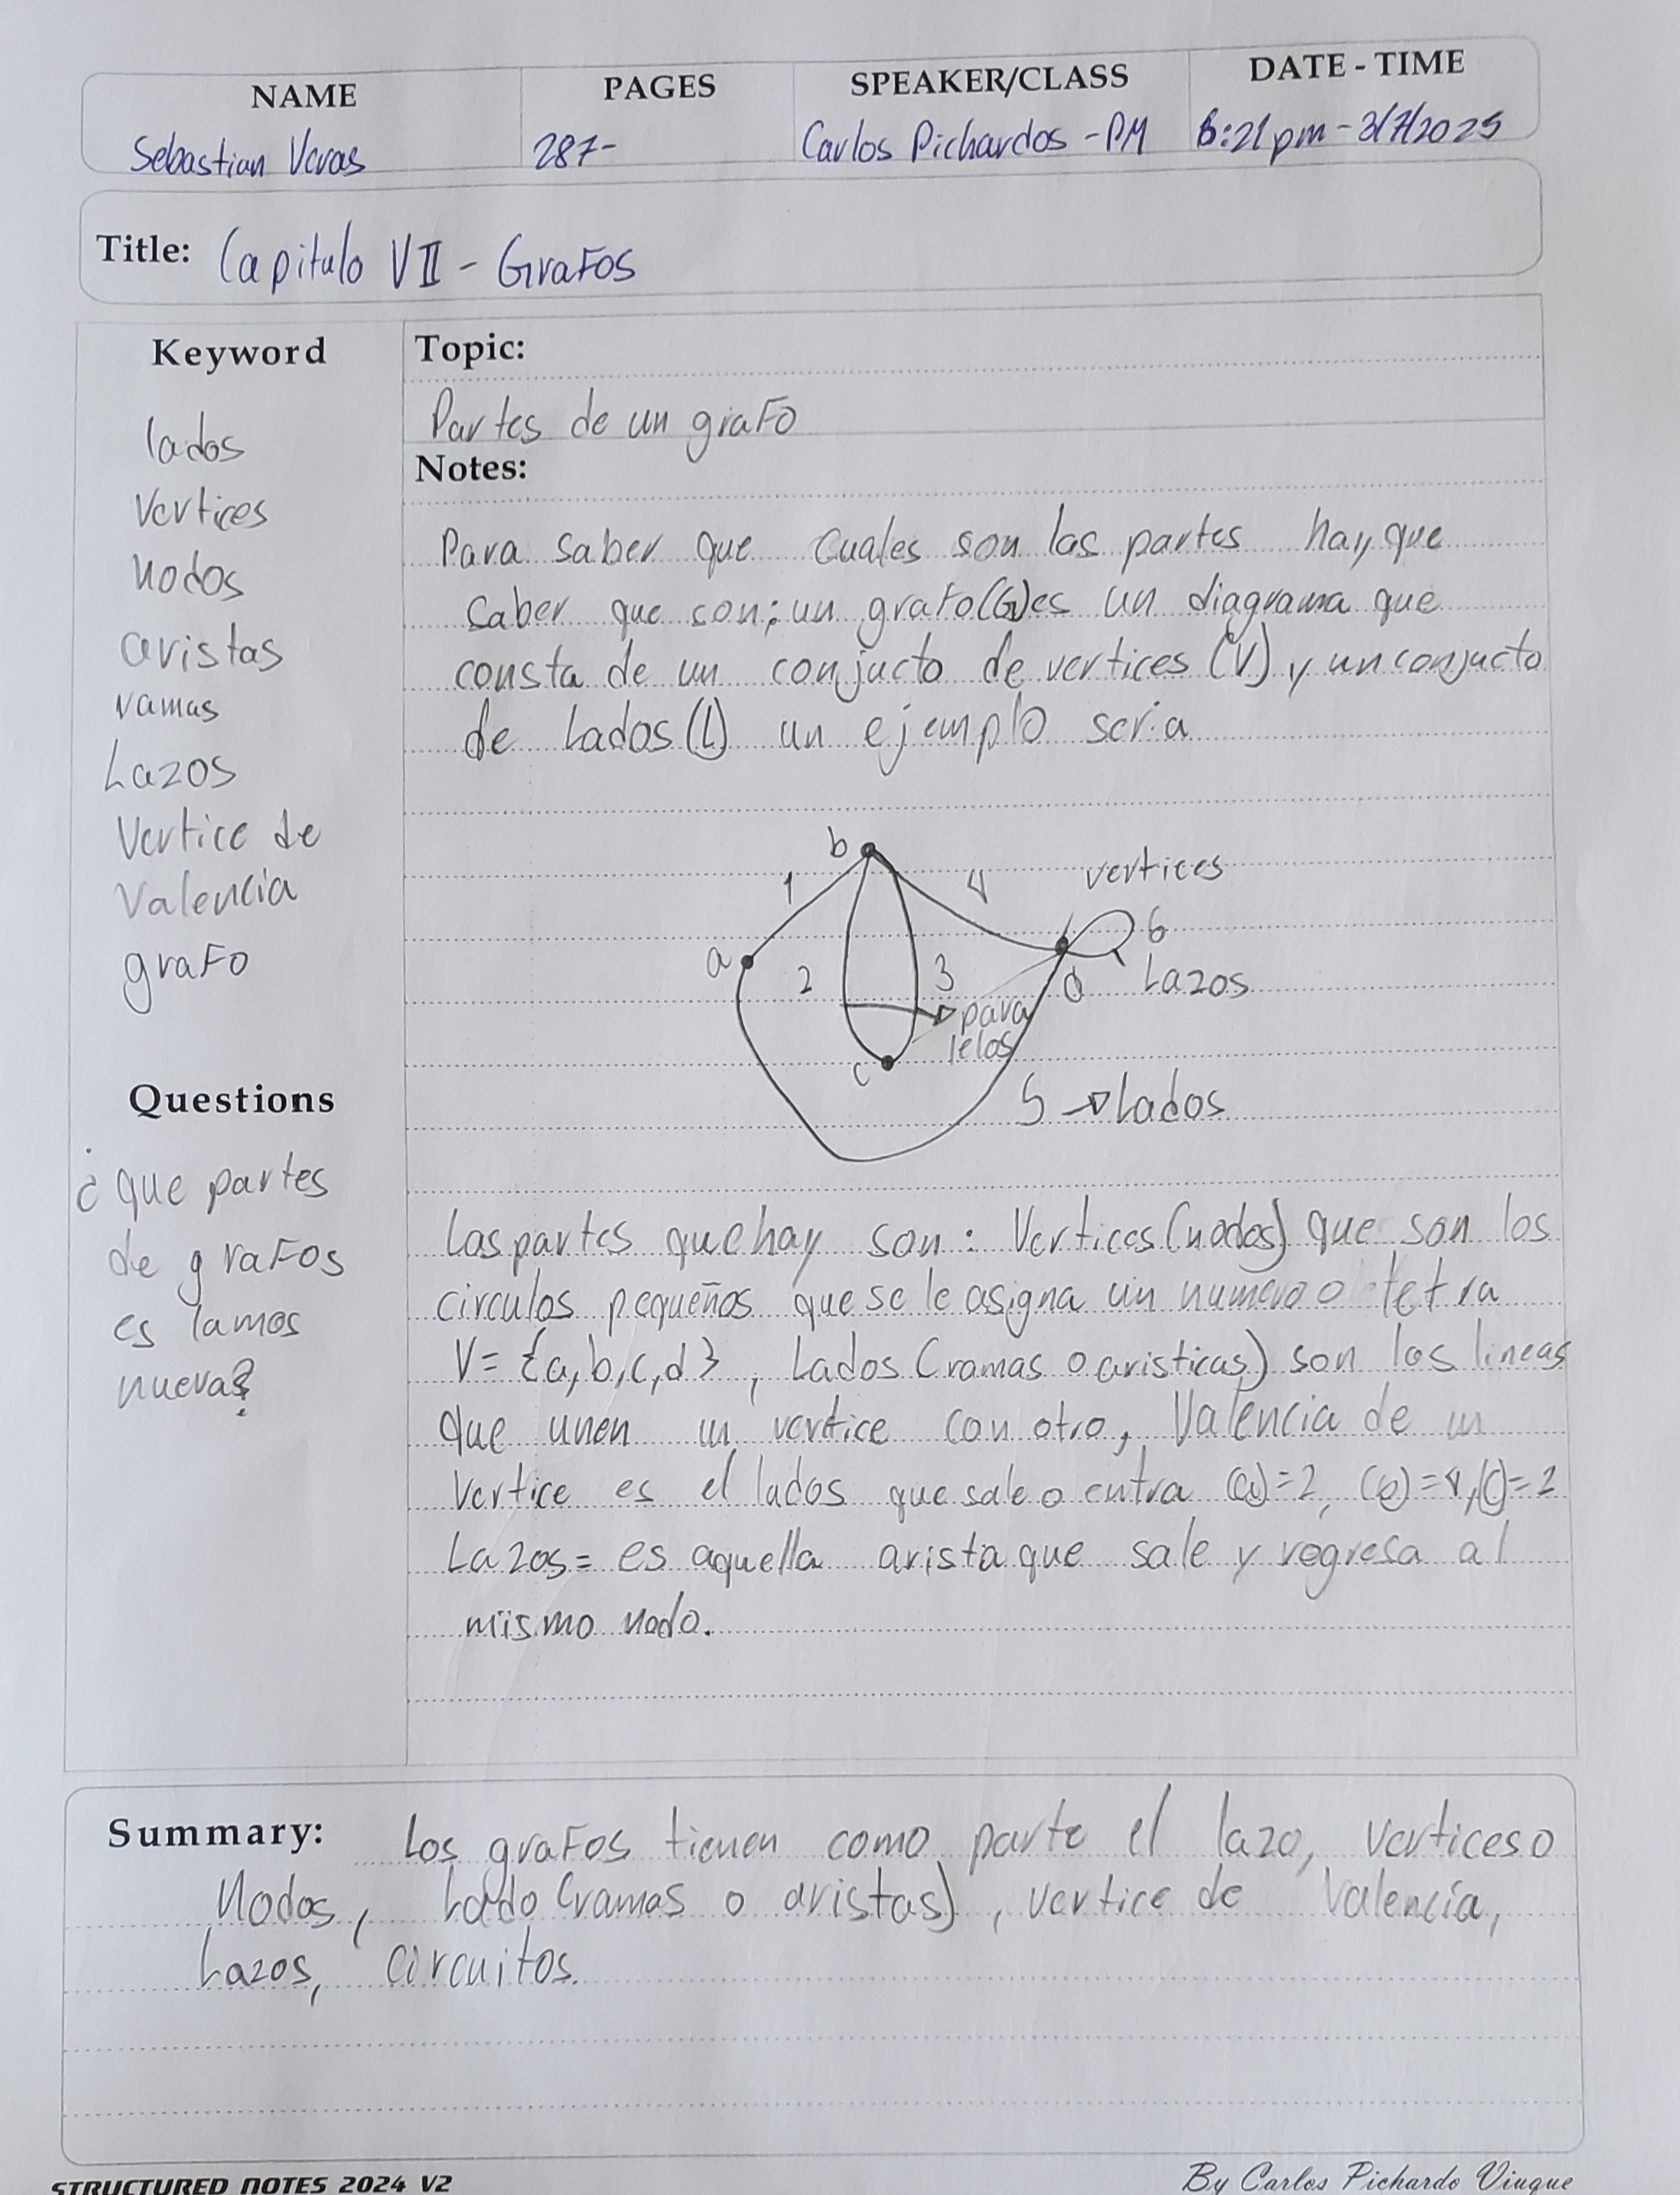 NAME PAGES SPEAKER/CLASS DATE - TIME
Sebastian Veras 287- Carlos Pichardos - PM 6:21pm - 3/7/2025
Title: Capitulo VII - Grafos
Keyword
lados
Vertices
nodos
aristas
ramas
Lazos
Vertice de
Valencia
grafo
Questions
¿que partes
de grafos
es lamos
nueva?
Topic:
Partes de un grafo
Notes:
Para saber que cuales son las partes hay que
saber que son: un grafo(G)es un diagrama que
consta de un conjucto de vertices (V) y un conjucto
de Lados (L) un ejemplo seria
b
1 4 vertices
a 2 3 6
d Lazos
para
lelos
c
5 → Lados
Las partes que hay son: Vertices (nodos) que son los
circulos pequeños que se le asigna un numero o letra
V= {a,b,c,d} , Lados (ramas o aristicas) son las lineas
que unen un vertice con otro, Valencia de un
Vertice es el lados que sale o entra (a)=2, (b)=4,(c)=2
Lazos= es aquella arista que sale y regresa al
mismo nodo.
Summary: Los grafos tienen como parte el lazo, vertices o
Nodos, Lado (ramas o aristas), vertice de Valencia,
Lazos, circuitos.
STRUCTURED NOTES 2024 V2 By Carlos Pichardo Viuque